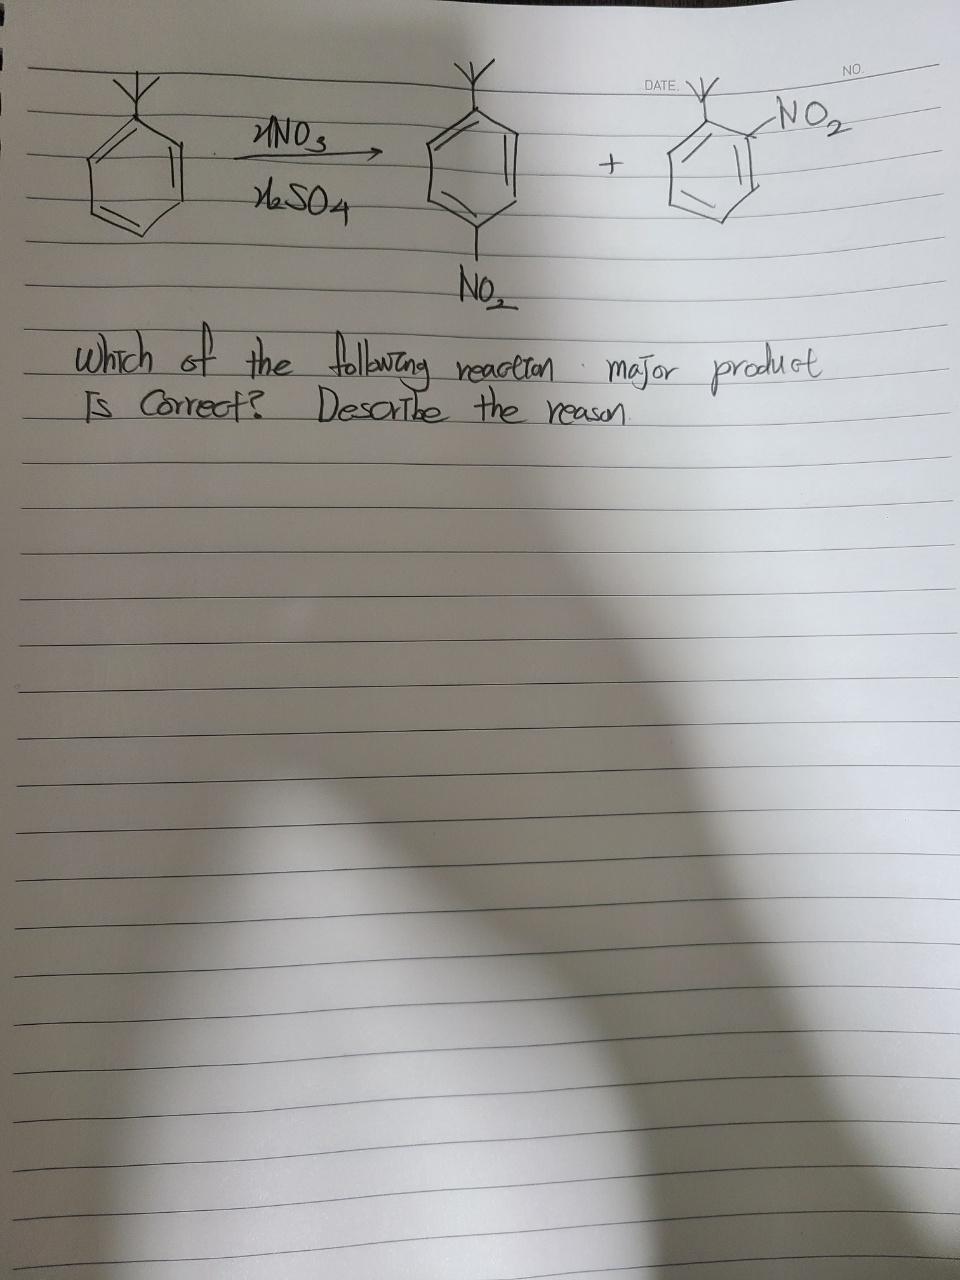 DATE.
NO.
HNO3
H2SO4
+
NO2
NO2
Which of the following reaction major product
Is correct? Describe the reason.